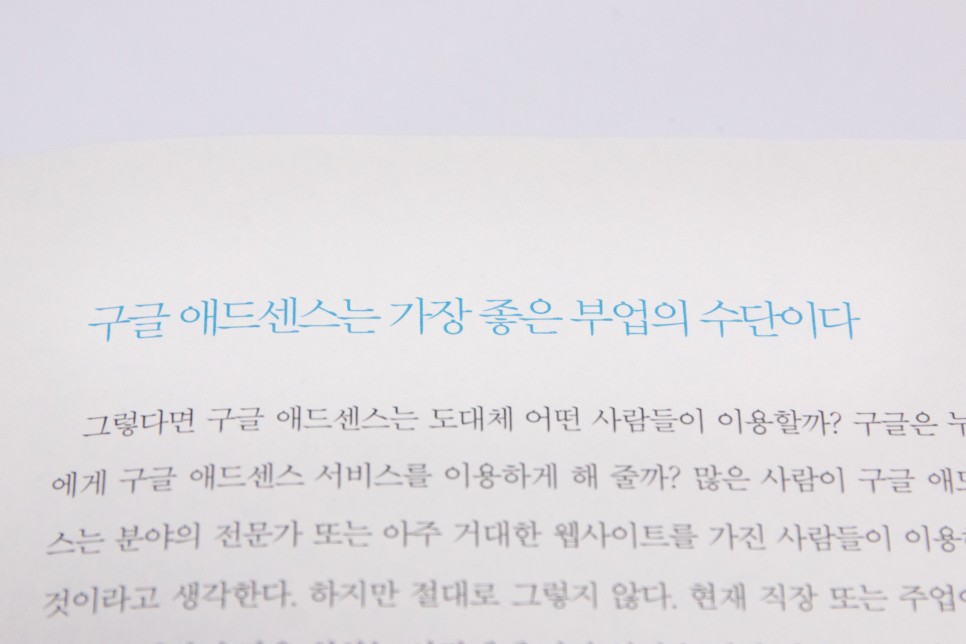 구글 애드센스는 가장 좋은 부업의 수단이다
그렇다면 구글 애드센스는 도대체 어떤 사람들이 이용할까? 구글은
에게 구글 애드센스 서비스를 이용하게 해 줄까? 많은 사람이 구글
스는 분야의 전문가 또는 아주 거대한 웹사이트를 가진 사람들이
것이라고 생각한다. 하지만 절대로 그렇지 않다. 현재 직장 또는